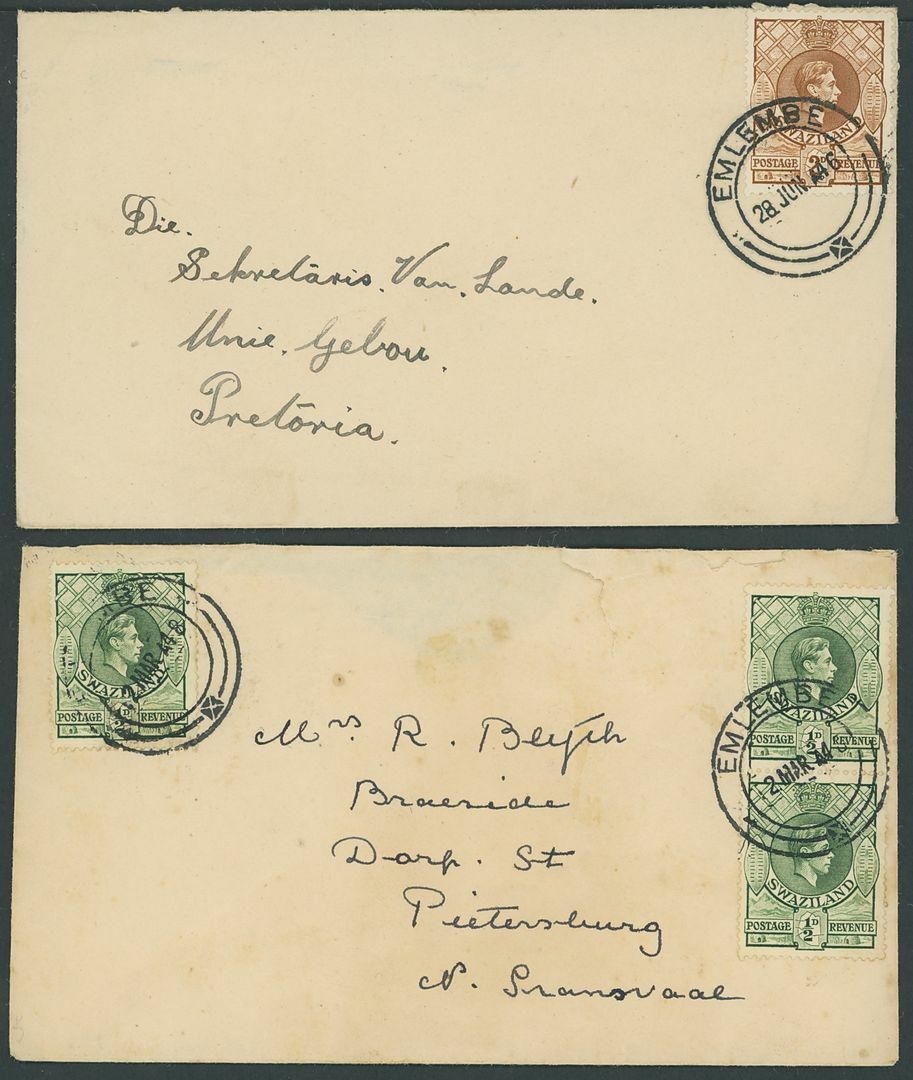 SWAZILAND
POSTAGE 2D REVENUE
EMLEMBE
28 JUN 46
Die.
Sekretaris. Van. Lande.
Unie. Gebou.
Pretoria.
SWAZILAND
POSTAGE ½D REVENUE
BE
MAR 44
SWAZILAND
POSTAGE ½D REVENUE
EMLEMBE
2 MAR 44
SWAZILAND
POSTAGE ½D REVENUE
Mrs R. Blyth
Braeside
Dorp. St
Pietersburg
N. Transvaal